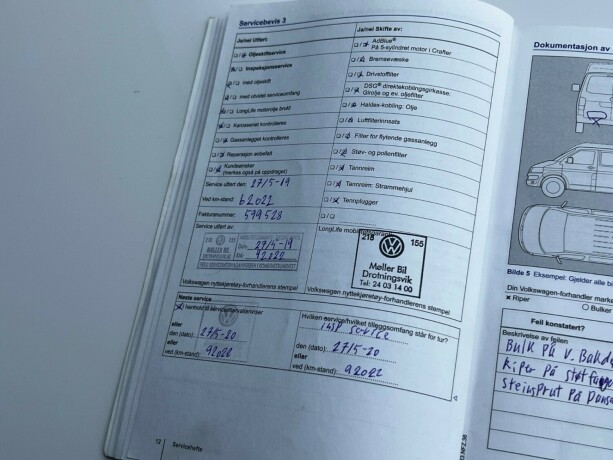 Servicebevis 3
Ja/nei Utført:
Oljeskiftservice
Inspeksjonsservice
med oljeskift
med utvidet serviceomfang
LongLife motorolje brukt
Karosseriet kontrolleres
Gassanlegget kontrolleres
Reparasjon anbefalt
Kundeønsker
(merkes også på oppdraget)
Service utført den: 27/5-19
Ved km-stand: 62022
Fakturanummer: 599528
Service utført av:
218 155
MØLLER BIL
DROTNINGSVIK
Dato 27/5-19
Km 92020
Volkswagen nyttekjøretøy-forhandlerens stempel
Ja/nei Skifte av:
AdBlue®
På 5-sylindret motor i Crafter
Bremsevæske
Drivstoffilter
DSG® direktekoblingsgirkasse:
Girolje og ev. oljefilter
Haldex-kobling: Olje
Luftfilterinnsats
Filter for flytende gassanlegg
Støv- og pollenfilter
Tannreim
Tannreim: Strammehjul
Tennplugger
LongLife mobilitetsgaranti
218 155
Møller Bil
Drotningsvik
Tel: 24 03 14 00
Volkswagen nyttekjøretøy-forhandlerens stempel
Neste service
eller
den (dato): 27/5-20
eller
ved (km-stand): 92022
Hvilken service/hvilket tilleggsomfang står for tur?
insp service
den (dato): 27/5-20
eller
ved (km-stand): 92022
12 Servicehefte
Dokumentasjon av
Bilde 5 Eksempel: Gjelder alle bi
Din Volkswagen-forhandler marke
Riper
Bulker
Feil konstatert?
Beskrivelse av feilen
Bulk på v. Bakdø
Riper på støtfange
steinsprut på Panse